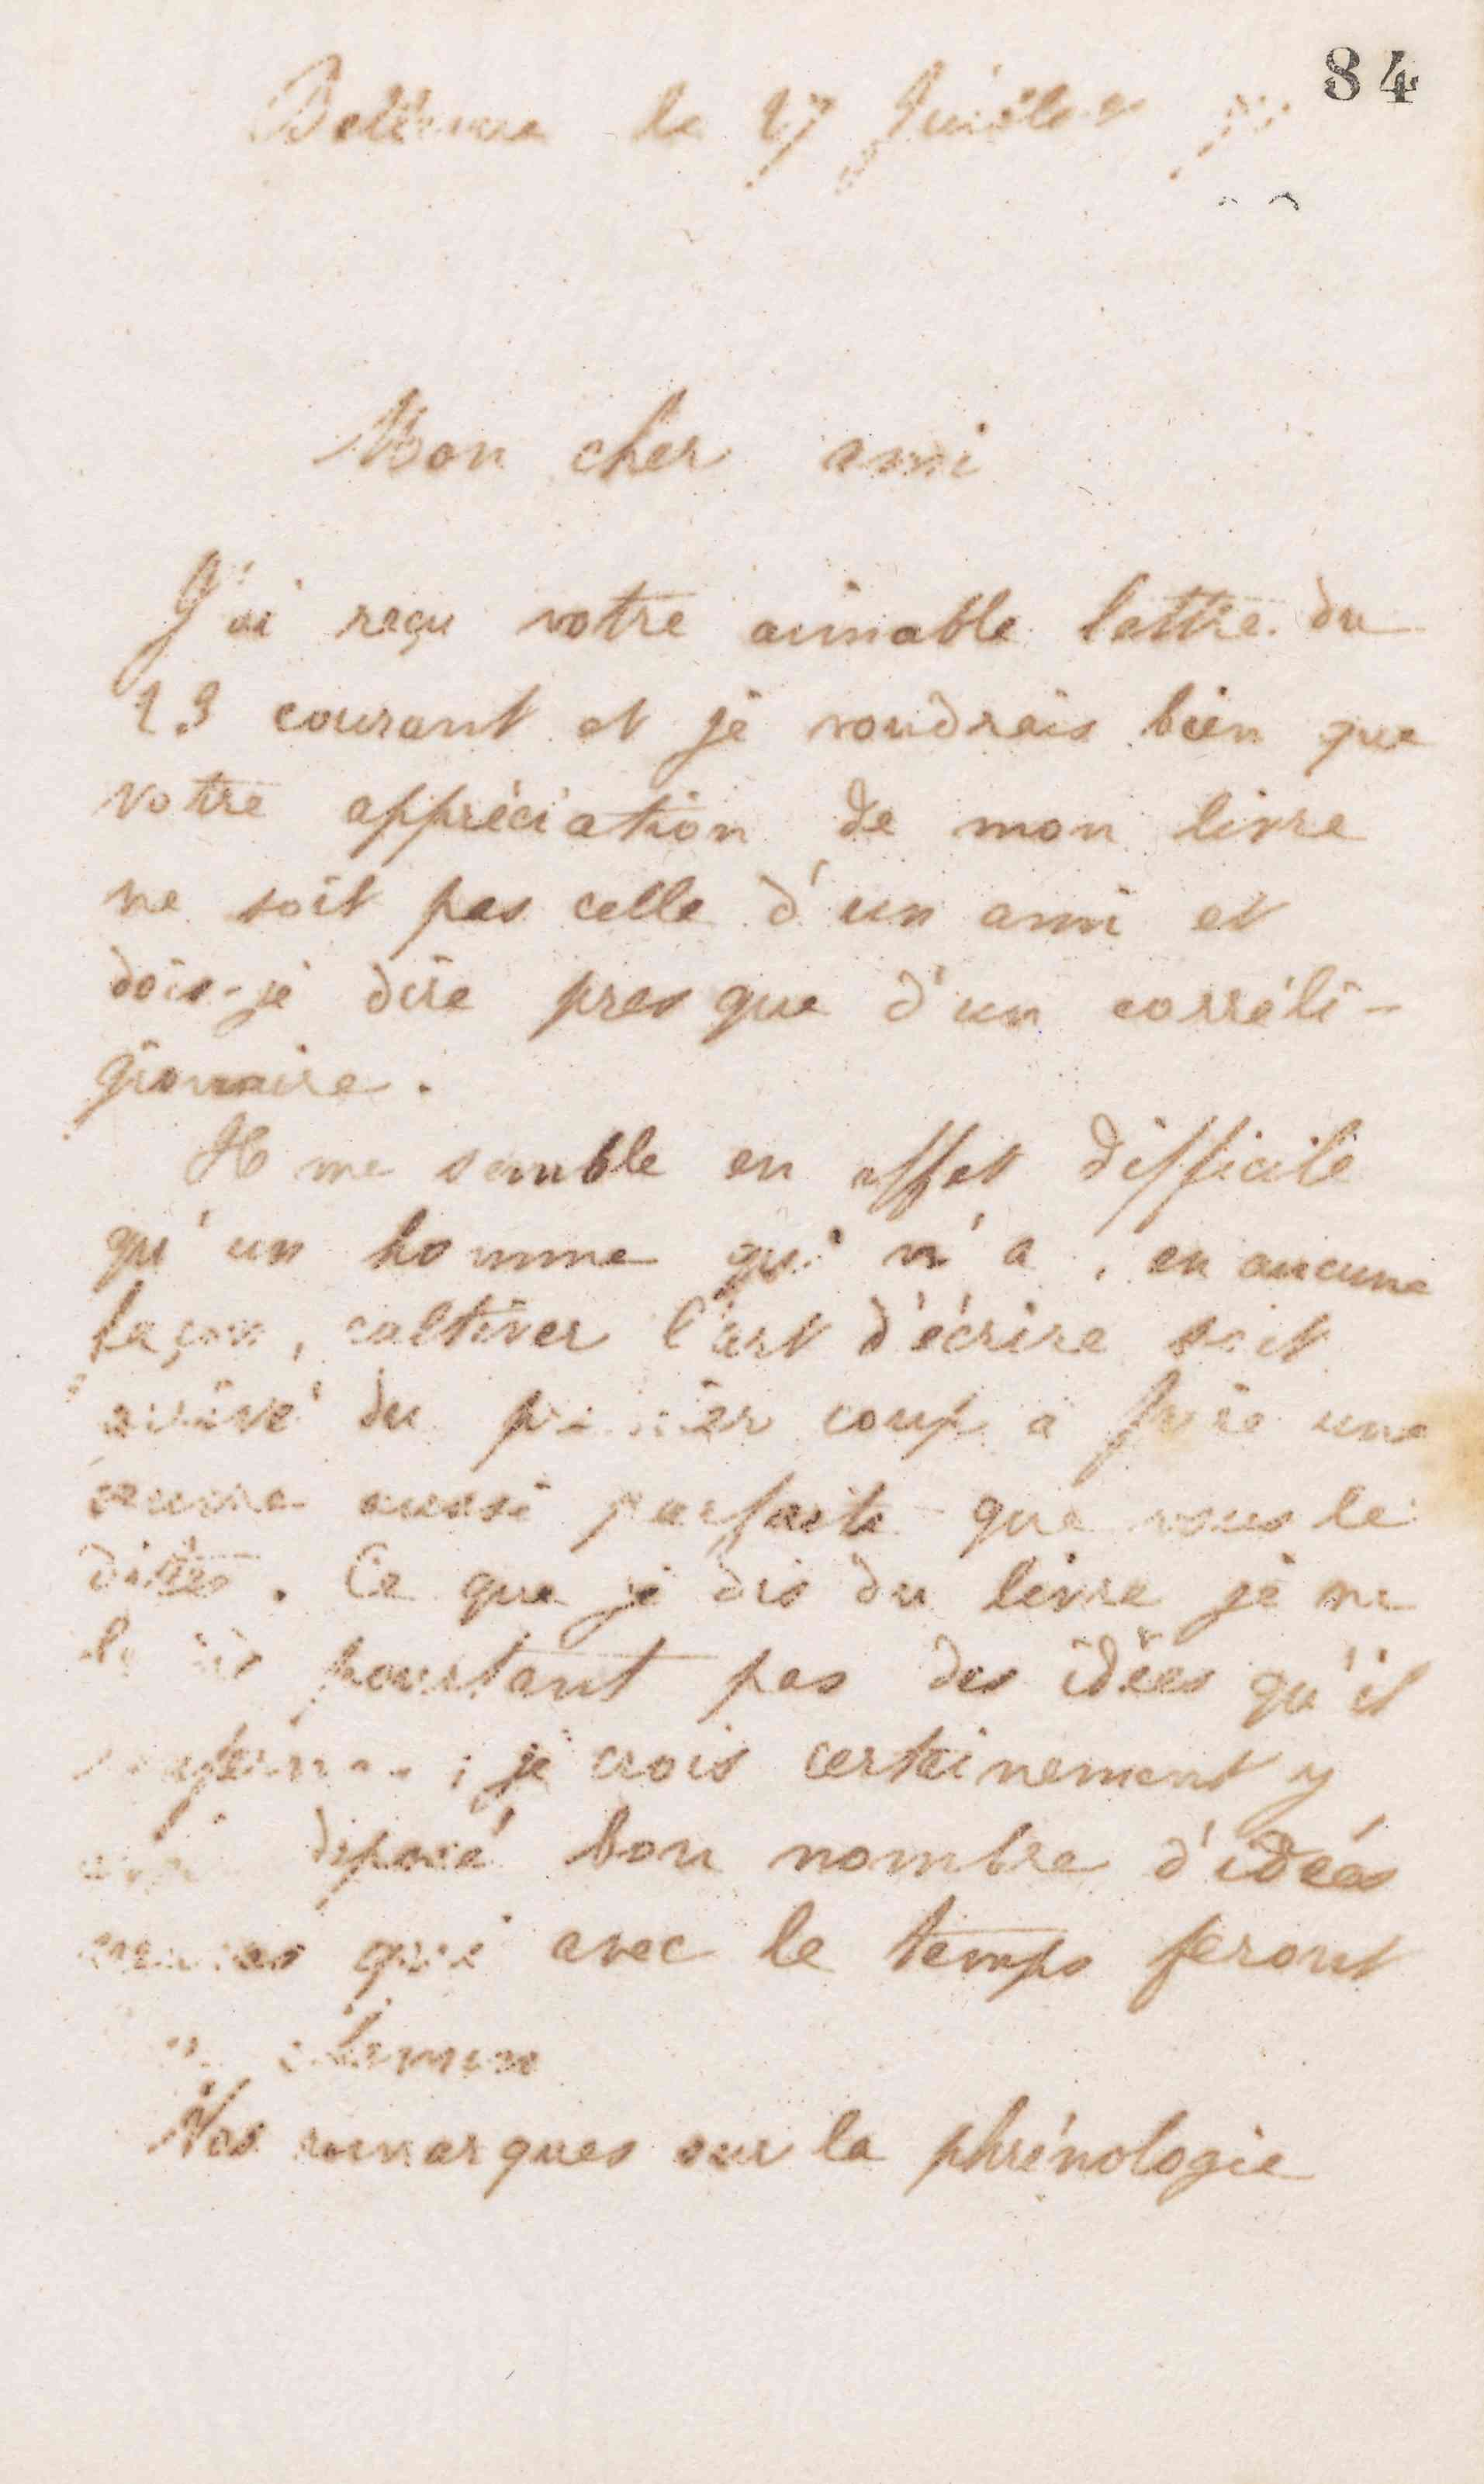 84
Bellevue le 27 Juillet
Mon cher ami
J'ai reçu votre aimable lettre du
23 courant et je voudrais bien que
votre appréciation de mon livre
ne soit pas celle d'un ami et
dois-je dire presque d'un corréli-
gionnaire.
Il me semble en effet difficile
qu'un homme qui n'a, en aucune
façon, cultiver l'art d'écrire soit
arrivé du premier coup à faire une
œuvre aussi parfaite que vous le
dites. Ce que je dis du livre je ne
le dis pourtant pas des idées qu'il
; je crois certainement y
déposé bon nombre d'idées
qui avec le temps feront
chemin
Vos remarques sur la phrénologie